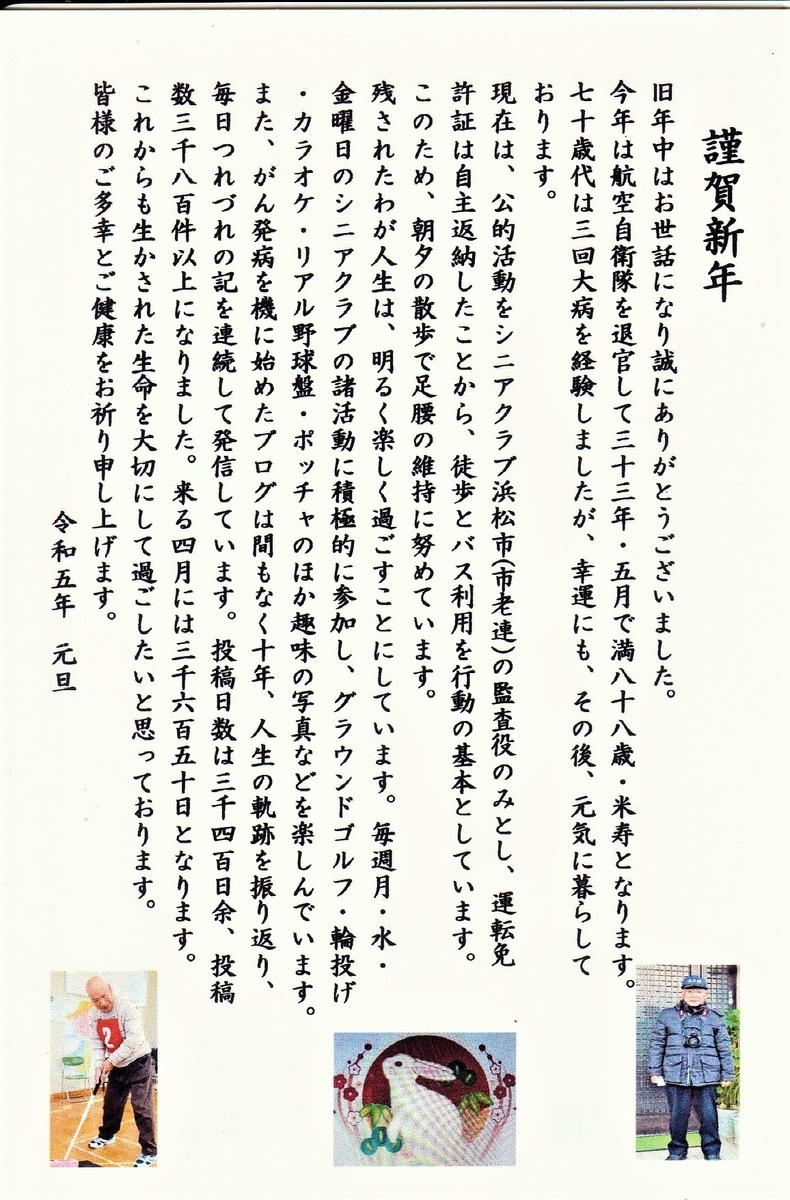 謹賀新年
旧年中はお世話になり誠にありがとうございました。
今年は航空自衛隊を退官して三十三年・五月で満八十八歳・米寿となります。
七十歳代は三回大病を経験しましたが、幸運にも、その後、元気に暮らして
おります。
現在は、公的活動をシニアクラブ浜松市(市老連)の監査役のみとし、運転免
許証は自主返納したことから、徒歩とバス利用を行動の基本としています。
このため、朝夕の散歩で足腰の維持に努めています。
残されたわが人生は、明るく楽しく過ごすことにしています。毎週月・水・
金曜日のシニアクラブの諸活動に積極的に参加し、グラウンドゴルフ・輪投げ
・カラオケ・リアル野球盤・ポッチャのほか趣味の写真などを楽しんでいます。
また、がん発病を機に始めたブログは間もなく十年、人生の軌跡を振り返り、
毎日つれづれの記を連続して発信しています。投稿日数は三千四百日余、投稿
数三千八百件以上になりました。来る四月には三千六百五十日となります。
これからも生かされた生命を大切にして過ごしたいと思っております。
皆様のご多幸とご健康をお祈り申し上げます。
令和五年 元旦
2